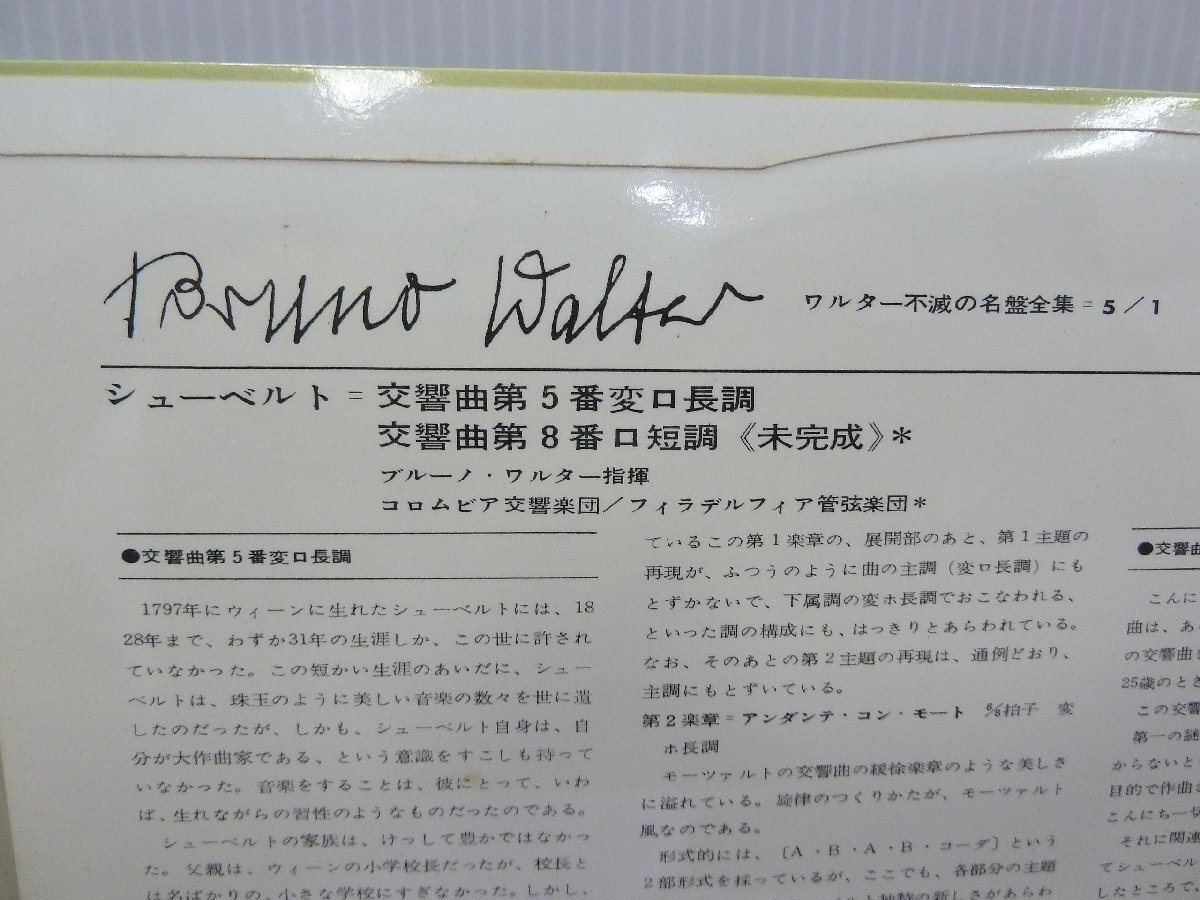 Bruno Walter
ワルター不滅の名盤全集=5/1
シューベルト=交響曲第5番変ロ長調
交響曲第8番ロ短調《未完成》*
ブルーノ・ワルター指揮
コロムビア交響楽団/フィラデルフィア管弦楽団*
●交響曲第5番変ロ長調
1797年にウィーンに生れたシューベルトには、18
28年まで、わずか31年の生涯しか、この世に許され
ていなかった。この短かい生涯のあいだに、シュー
ベルトは、珠玉のように美しい音楽の数々を世に遺
したのだったが、しかも、シューベルト自身は、自
分が大作曲家である、という意識をすこしも持って
いなかった。音楽をすることは、彼にとって、いわ
ば、生れながらの習性のようなものだったのである。
シューベルトの家族は、けっして豊かではなかっ
た。父親は、ウィーンの小学校長だったが、校長と
は名ばかりの、小さな学校にすぎなかった。しかし、
ているこの第1楽章の、展開部のあと、第1主題の
再現が、ふつうのように曲の主調(変ロ長調)にも
とずかないで、下属調の変ホ長調でおこなわれる、
といった調の構成にも、はっきりとあらわれている。
なお、そのあとの第2主題の再現は、通例どおり、
主調にもとずいている。
第2楽章=アンダンテ・コン・モート 6/8拍子 変
ホ長調
モーツァルトの交響曲の緩徐楽章のような美しさ
に溢れている。旋律のつくりかたが、モーツァルト
風なのである。
形式的には、〔A・B・A・B・コーダ〕という
2部形式を採っているが、ここでも、各部分の主題
ルト独特の新しさがあらわ
●交響曲
こんに
曲は、あ
の交響曲
25歳のとき
この交響
第一の謎
からないと
目的で作曲
こんにち一切
それに関連
てシューベル
したところで、